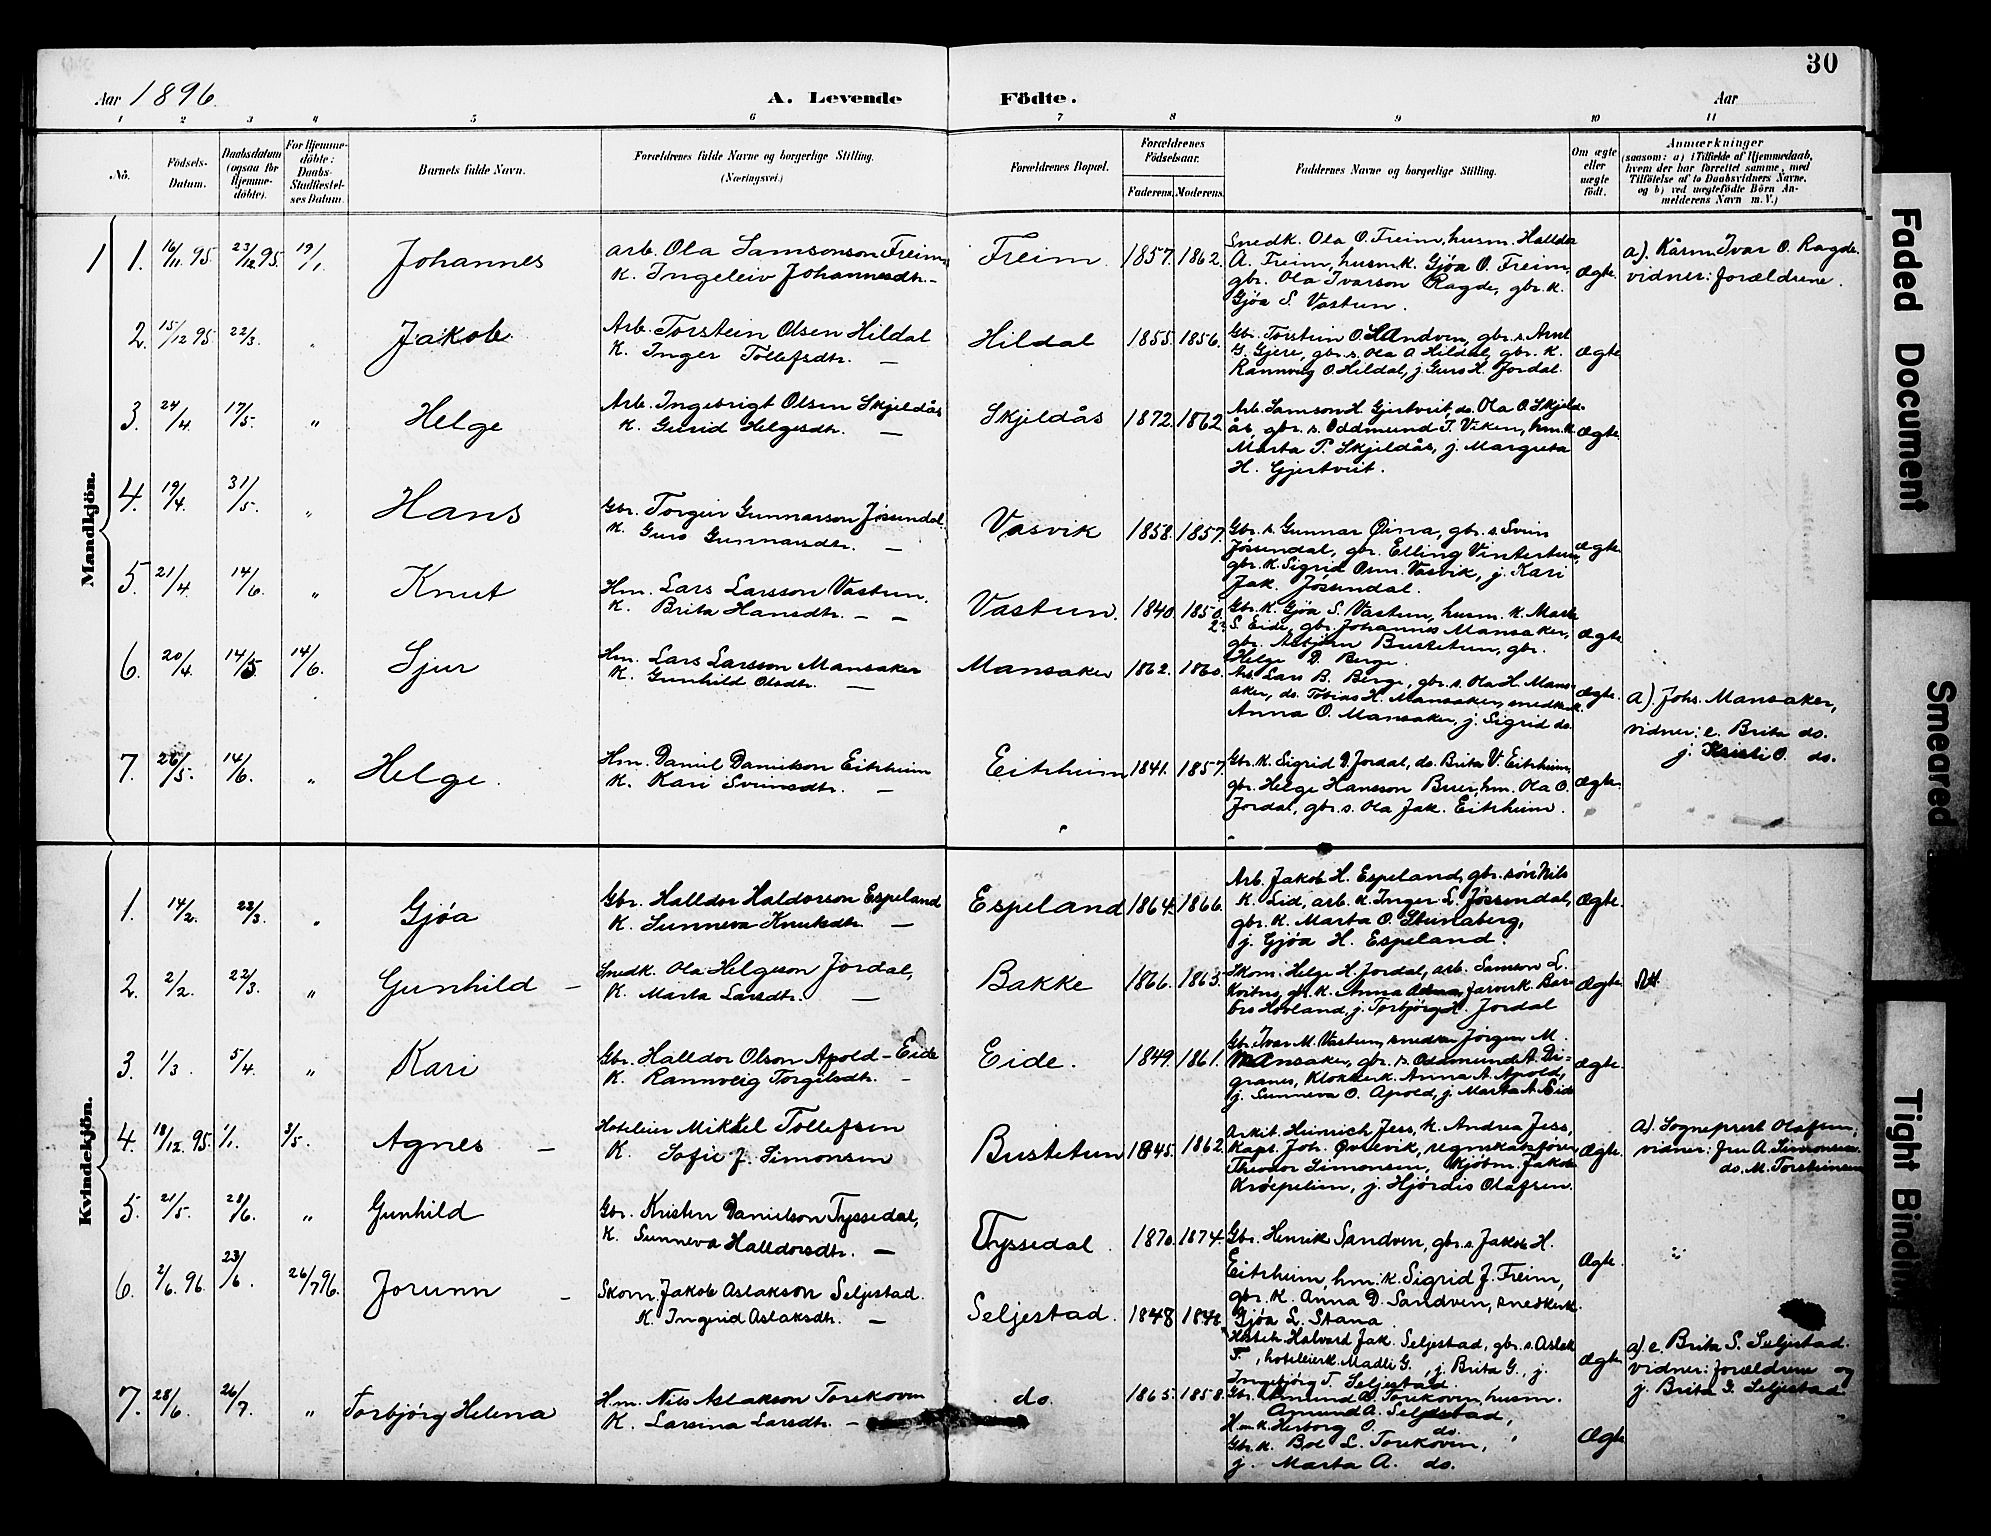 30
Aar 1896. A. Levende Födte. Aar
1 2 3 4 5 6 7 8 9 10 11
No. Födsels-Datum. Daabsdatum (ogsaa for Hjemme-döbte). For Hjemme-döbte: Daabs-Stadfæstel-ses Datum. Barnets fulde Navn. Forældrenes fulde Navne og borgerlige Stilling. (Næringsvei.) Forældrenes Bopæl. Forældrenes Födselsaar. Faderens. Moderens. Faddernes Navne og borgerlige Stilling. Om ægte eller uægte födt. Anmærkninger (saasom: a) i Tilfælde af Hjemmedaab, hvem der har forrettet samme, med Tilföielse af to Daabsvidners Navne, og b) ved uægtefödte Börn An-melderens Navn m. V.)
Mandkjön.
1 1. 16/11 95 23/12 95. 19/1. Johannes
arb. Ola Samsonson Freim,
K. Ingeleiv Johannesdtr. –
Freim. 1857. 1862.
Snedk. Ola O. Freim, husm. Halldor
A. Freim, husm.k. Gjøa O. Freim,
gbr. Ola Ivarson Ragde, gbr. k.
Gjøa S. Vastun.
Ægte.
a). Kårm. Ivar O. Ragde.
vidner: forældrene.
2. 15/12 95 22/3. " Jakob
Arb. Torstein Olsen Hildal
K. Inger Tollefsdtr. –
Hildal 1855. 1856.
Gbr. Torstein O. Sandven, gbr. s. Arne
G. Gjere, gbr. s. Ola O Hildal, gbr. K.
Rannveig O. Hildal, j. Guro H. Jordal.
Ægte
3. 24/4. 17/5. " Helge
Arb. Ingebrigt Olsen Skjeldås
K. Gurid Helgesdtr. –
Skjeldås 1872. 1862.
Arb. Samson H. Gjertveit, do. Ola O. Skjeld-
ås, gbr. s. Oddmund T. Viken, hm.k.
Marta P. Skjeldås, j. Margreta
H. Gjertveit.
Ægte.
4. 19/4. 31/5. " Hans
Gbr. Torgeir Gunnarson Jøsendal.
K. Guro Gunnarsdtr. –
Vasvik 1858. 1857.
Gbr. s. Gunnar Øina, gbr. s. Svein
Jøsendal, gbr. Elling Vintertun,
gbr. k. Sigrid Osm. Vasvik, j. Kari
Jak. Jøsendal.
Ægte
5. 21/4. 14/6. " Knut
Hm. Lars Larsson Vastun.
K. Brita Hansdtr. – –
Vastun. 1840. 1850.
Gbr. K. Gjøa S. Vastun, husm. k. Marta
S. Eide, gbr. Johannes Mansaker,
gbr. Asbjørn Bustetun, gbr.
Helge D. Berge.
Ægte
6. 20/4. 14/5 14/6. Sjur
Hm. Lars Larsson Mansaker
K. Gunhild Olsdtr. –
Mansaker 1862. 1860.
Lars B. Berge, gbr. s. Ola H. Mans-
aker, do. Tobias H. Mansaker, snedkerk.
Anna O. Mansaker, j. Sigrid do.
Ægte.
a). Johs. Mansaker,
vidner: e. Brita do.
j. Kristi O. do.
7. 26/5. 14/6. " Helge.
Hm. Daniel Danielson Eitrheim
K. Kari Sveinsdtr. –
Eitrheim 1841. 1857.
Gbr. K. Sigrid D. Jordal, do. Brita V. Eitrheim,
gbr. Helge Hansson Buer, hm. Ola O.
Jordal, gbr. s. Ola Jak. Eitrheim.
Ægte.
Kvindekjön.
1. 14/2. 22/3. " Gjøa
Gbr. Halldor Haldorson Espeland
K. Sunneva Knutsdtr. –
Espeland 1864. 1866.
Arb. Jakob H. Espeland, gbr. søn Nils
K. Lid, arb. k. Inger L. Jøssendal,
gbr. K. Marta O. Steinaberg,
j. Gjøa H. Espeland.
Ægte.
2. 2/2. 22/3. " Gunhild –
Snedk. Ola Helgeson Jordal,
K. Marta Larsdtr. –
Bakke 1866. 1863.
Skom. Helge H. Jordal, arb. Samson L.
gbr. K. Anna
Hovland, j. Torbjørg H. Jordal
Ægte.
3. 1/3. 5/4. " Kari
Gbr. Halldor Olson Apold – Eide
K. Rannveig Torgilsdtr. –
Eide. 1849. 1861.
Gbr. Ivar M. Vastun, snedker Jørgen M.
Mansaker, gbr. s. Oddmund A. Di-
granes, Klokkerk. Anna A. Apold,
j. Sunneva O. Apold, j. Marta A. Eide
Ægte.
4. 18/12. 95. 1/1. 3/5. Agnes –
Hoteleier Mikkel Tollefsen
K. Sofie J. Simonsen
Bustetun 1845. 1862.
Arkit. Heinrich Jess, k. Andrea Jess,
Kapt. Joh. regnskabsfører
Theodor Simonsen, kjøbm. Jakob
Krøepelien, j. Hjørdis Olafsen.
Ægte.
a). Sogneprest Olafsen,
vidner: fru A. Simonsen
do. M. Torsteinsen
5. 21/5. 28/6. " Gunhild
Gbr. Kristen Danielson Tyssedal,
K. Sunneva Halldorsdtr. –
Tyssedal. 1870. 1874.
Gbr. Henrik Sandven, gbr. s. Jakob H.
Eitrheim, hm. k. Sigrid J. Freim,
gbr. K. Anna D. Sandven, snedkerk.
Gjøa L. Stana.
Ægte.
6. 2/6. 96. 23/6. 26/7 96. Jorunn –
Skom. Jakob Aslakson Seljestad.
K. Ingerid Aslaksdtr. –
Seljestad. 1848 1848
Hotele. Halvard Jak. Seljestad, gbr. s. Aslak
T. , hoteleierk. Madli G. , j. Brita G., j.
Ingebjørg T. Seljestad.
Ægte
a) e. Brita S. Seljestad.
vidner: forældrene og
j. Brita G. Seljestad
7. 28/6. 26/7. " Torbjørg Helena
Hm. Nils Aslakson Torekoven
K. Larsina Larsdtr. –
do. 1865. 1858.
Gbr. Amund Torekoven, husm.
Amund A. Seljestad,
Hm. k. Herborg O. do.
Gbr. k. Bol L. Torekoven,
j. Marta A. do.
Ægte
Faded Document
Smeared
Tight Bindin